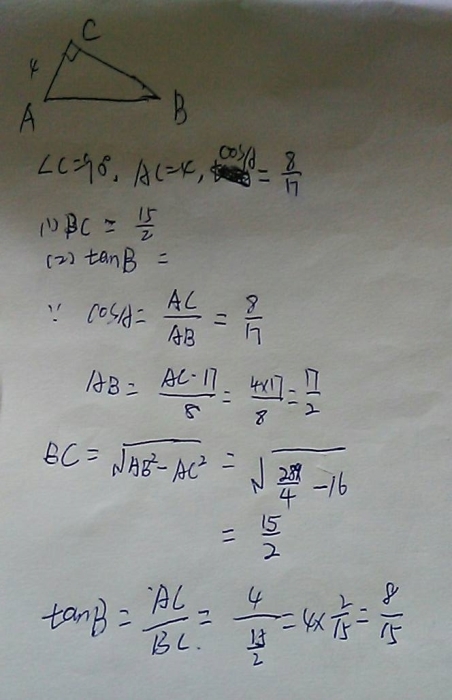 C
4
A
B
∠C=90°, AC=4, cosA = 8/17
(1) BC = 15/2
(2) tanB =
∵ cosA = AC/AB = 8/17
AB = AC·17/8 = 4×17/8 = 17/2
BC = √(AB²-AC²) = √(289/4 -16)
= 15/2
tanB = AC/BC. = 4/(15/2) = 4× 2/15 = 8/15